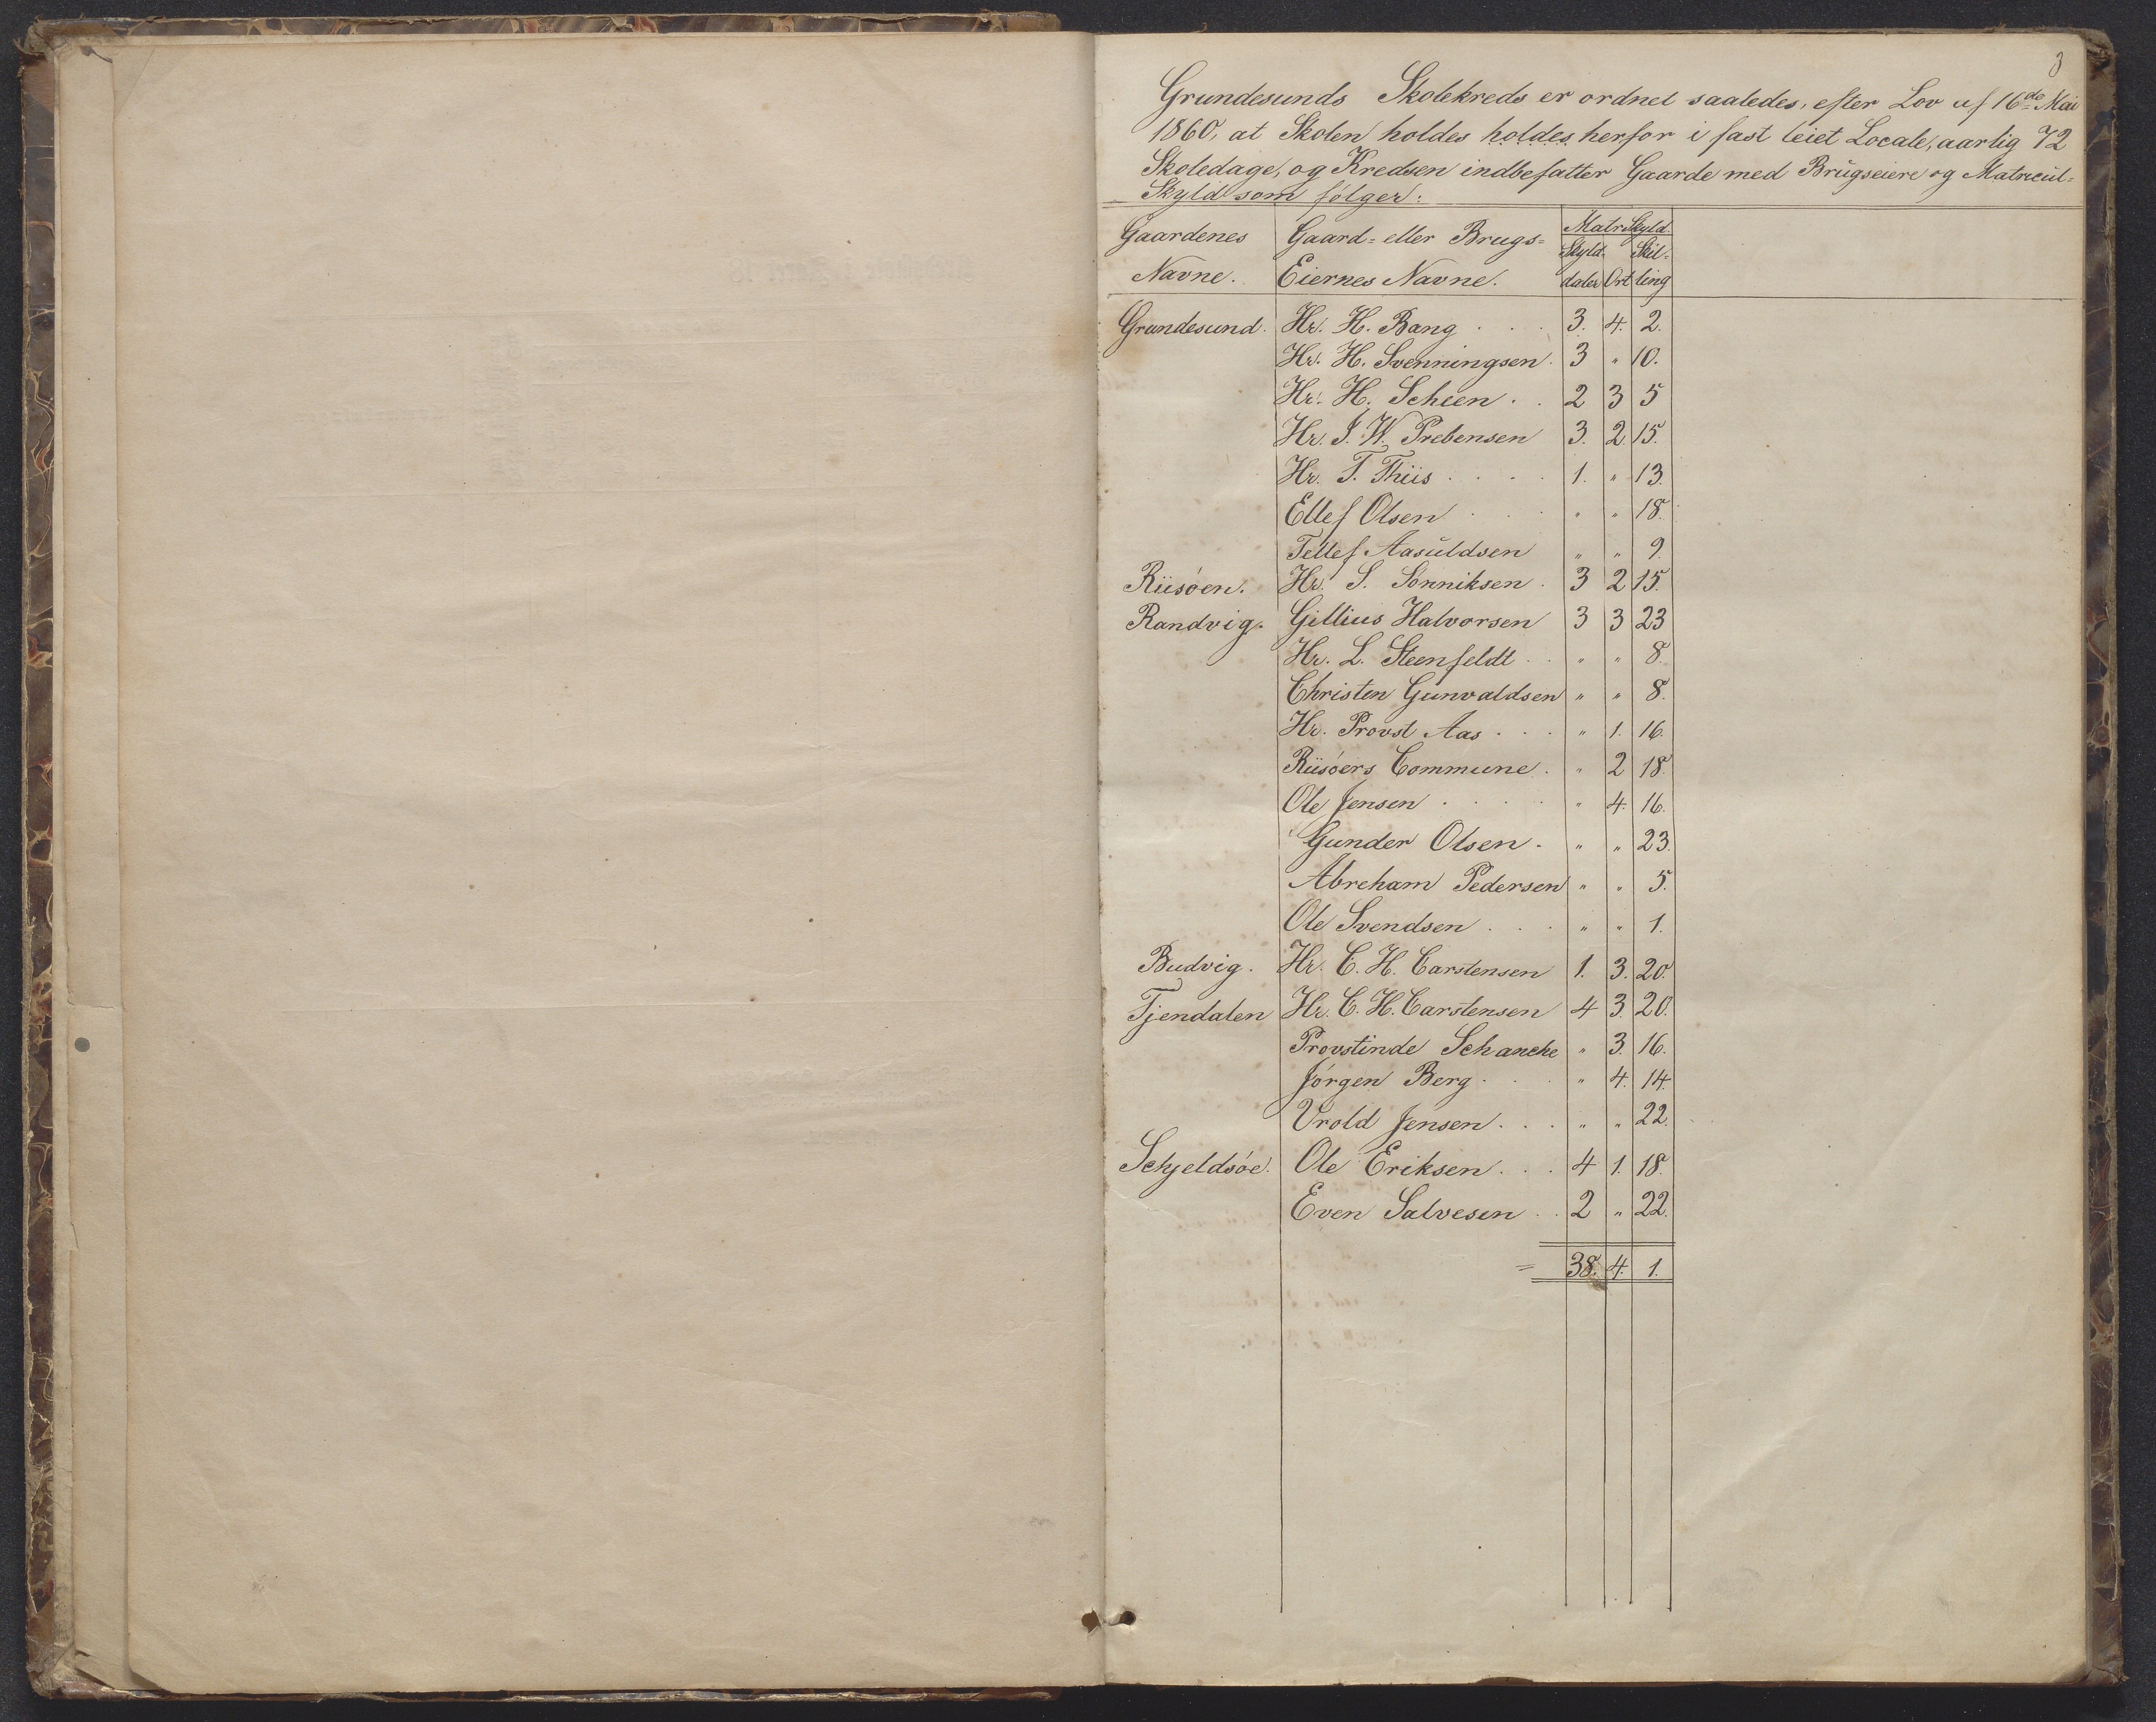 3
Grundesunds Skolekreds er ordnet saaledes, efter Lov af 16de Mai
1860, at Skolen holdes holdes herfor i fast leiet Locale, aarlig 72
Skoledage, og Kredsen indbefatter Gaarde med Brugseiere og Matricul-
Skyld som følger:
Gaardenes Gaard- eller Brugs- Matr. Skyld.
Skyld- Skil-
Navne. Eiernes Navne. daler Ort ling
Grundesund. Hr. H. Bang . . . 3. 4. 2.
Hr. H. Svenningsen. 3 " 10.
Hr. H. Scheen . . 2 3 5
Hr. J. W. Prebensen 3. 2. 15.
Hr. T. Thiis . . . . 1. " 13.
Ellef Olsen . . . " " 18.
Tellef Aasuldsen " " 9.
Riisøen. Hr. S. Sønniksen . 3 2 15.
Randvig. Gillius Halvorsen 3 3 23
Hr. L. Steenfeldt . . " " 8.
Christen Gunvaldsen " " 8.
Hr. Provst Aas . . . " 1. 16.
Riisøers Commune . " 2 18.
Ole Jensen . . . . " 4. 16.
Gunder Olsen . " " 23.
Abreham Pedersen " " 5.
Ole Svendsen . . . " " 1.
Budvig. Hr. C. H. Carstensen 1. 3. 20.
Tjendalen Hr. C. H. Carstensen 4 3. 20.
Provstinde Schanche " 3. 16.
Jørgen Berg . . . " 4. 14.
Vrold Jensen . . . " " 22.
Schjeldsøe. Ole Eriksen . . . 4 1. 18.
Even Salvesen . . 2 " 22.
= 38. 4. 1.